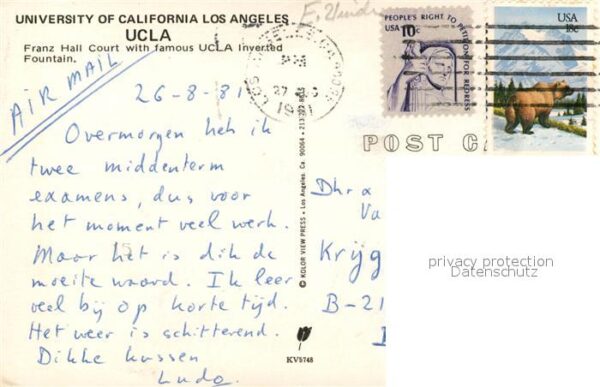 UNIVERSITY OF CALIFORNIA LOS ANGELES
UCLA
Franz Hall Court with famous UCLA Inverted
Fountain.
AIR MAIL
26-8-81
Overmorgen heb ik
twee middenterm
examens, dus voor
het moment veel werk.
Maar het is dik de
moeite waard. Ik leer
veel bij op korte tijd.
Het weer is schitterend.
Dikke kussen
Ludo.
© KOLOR VIEW PRESS • Los Angeles, Ca 90064 •
KV5748
PEOPLE'S RIGHT TO PETITION FOR REDRESS
USA 10c
USA
18c
PM
27
1981
POST CA
Dhr &
Va
Krijg
B-21
privacy protection
Datenschutz